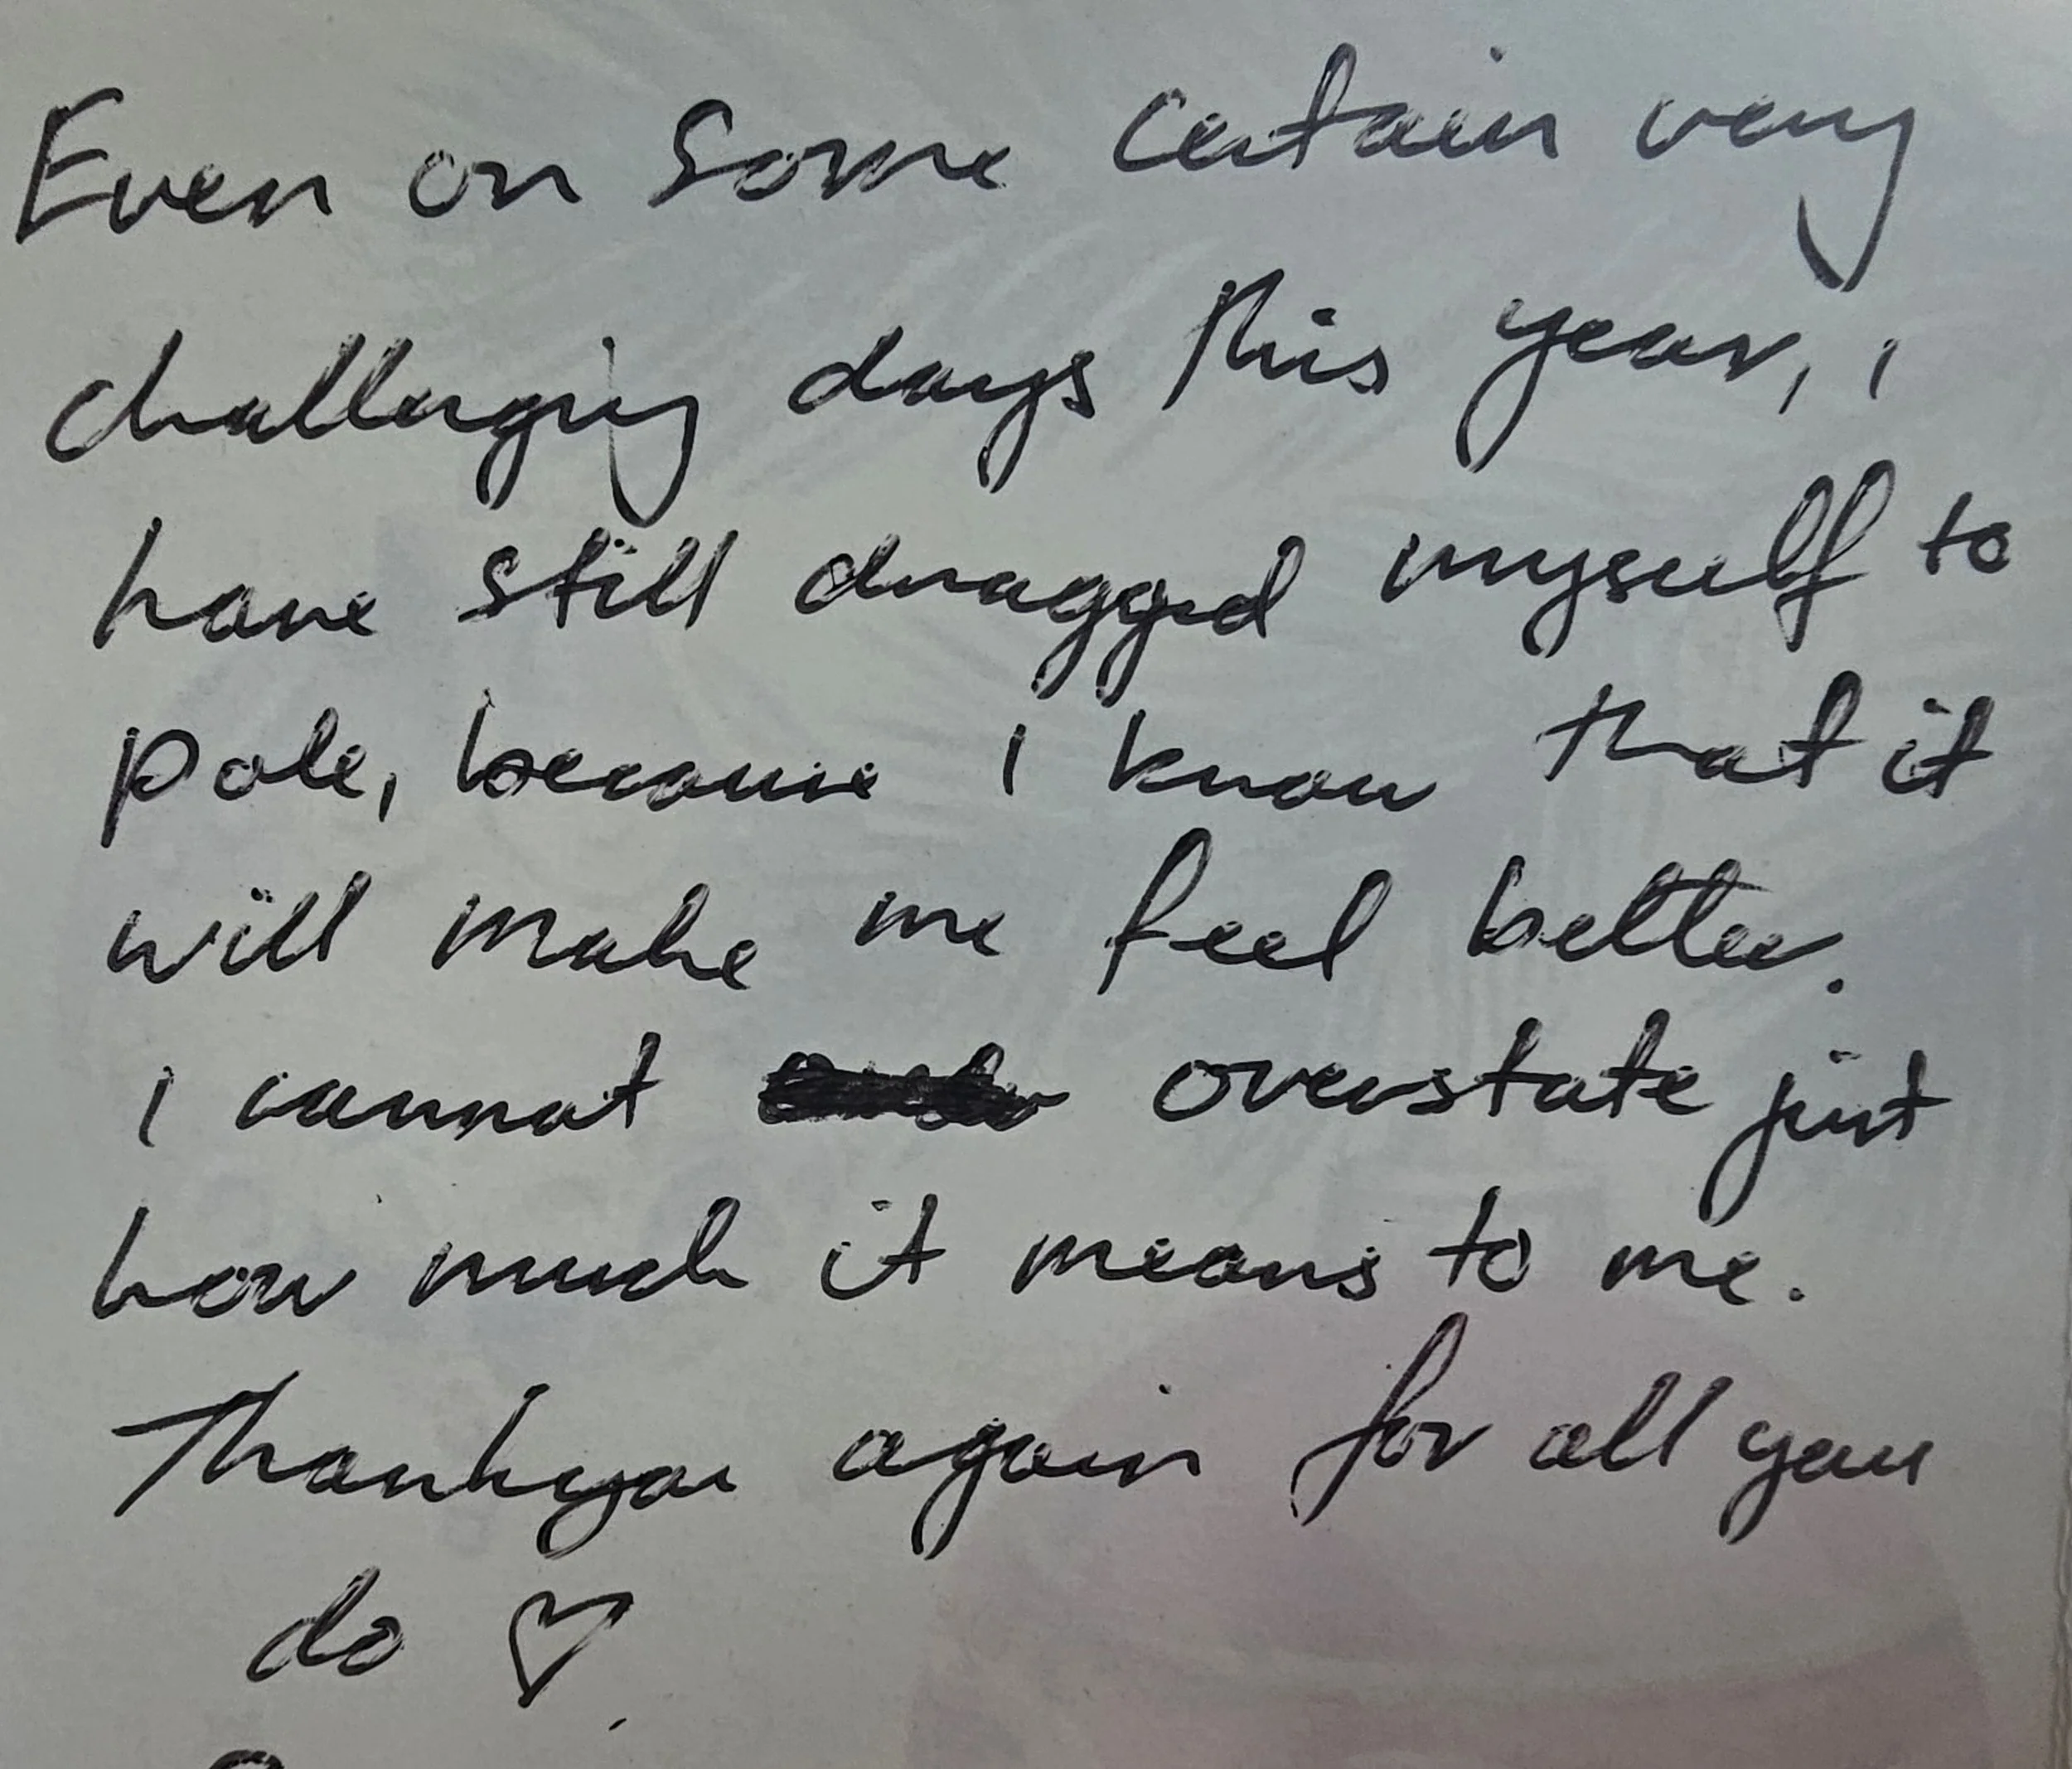 Even on some certain very
challenging days this year, I
have still dragged myself to
pole, because I know that it
will make me feel better.
I cannot overstate just
how much it means to me.
Thankyou again for all you
do ♡